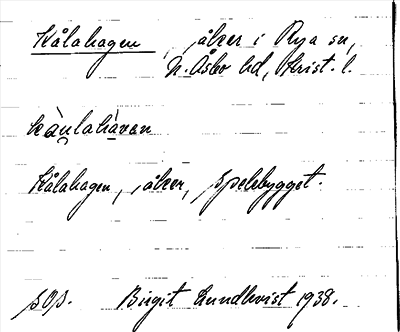 Kålahagen, åker i Rya sn,
N. Åsbo hd, Krist. l.
kàu̯lahàɤan
Kålahagen, åker, Spelebygget.
Birgit Lundkvist 1938.